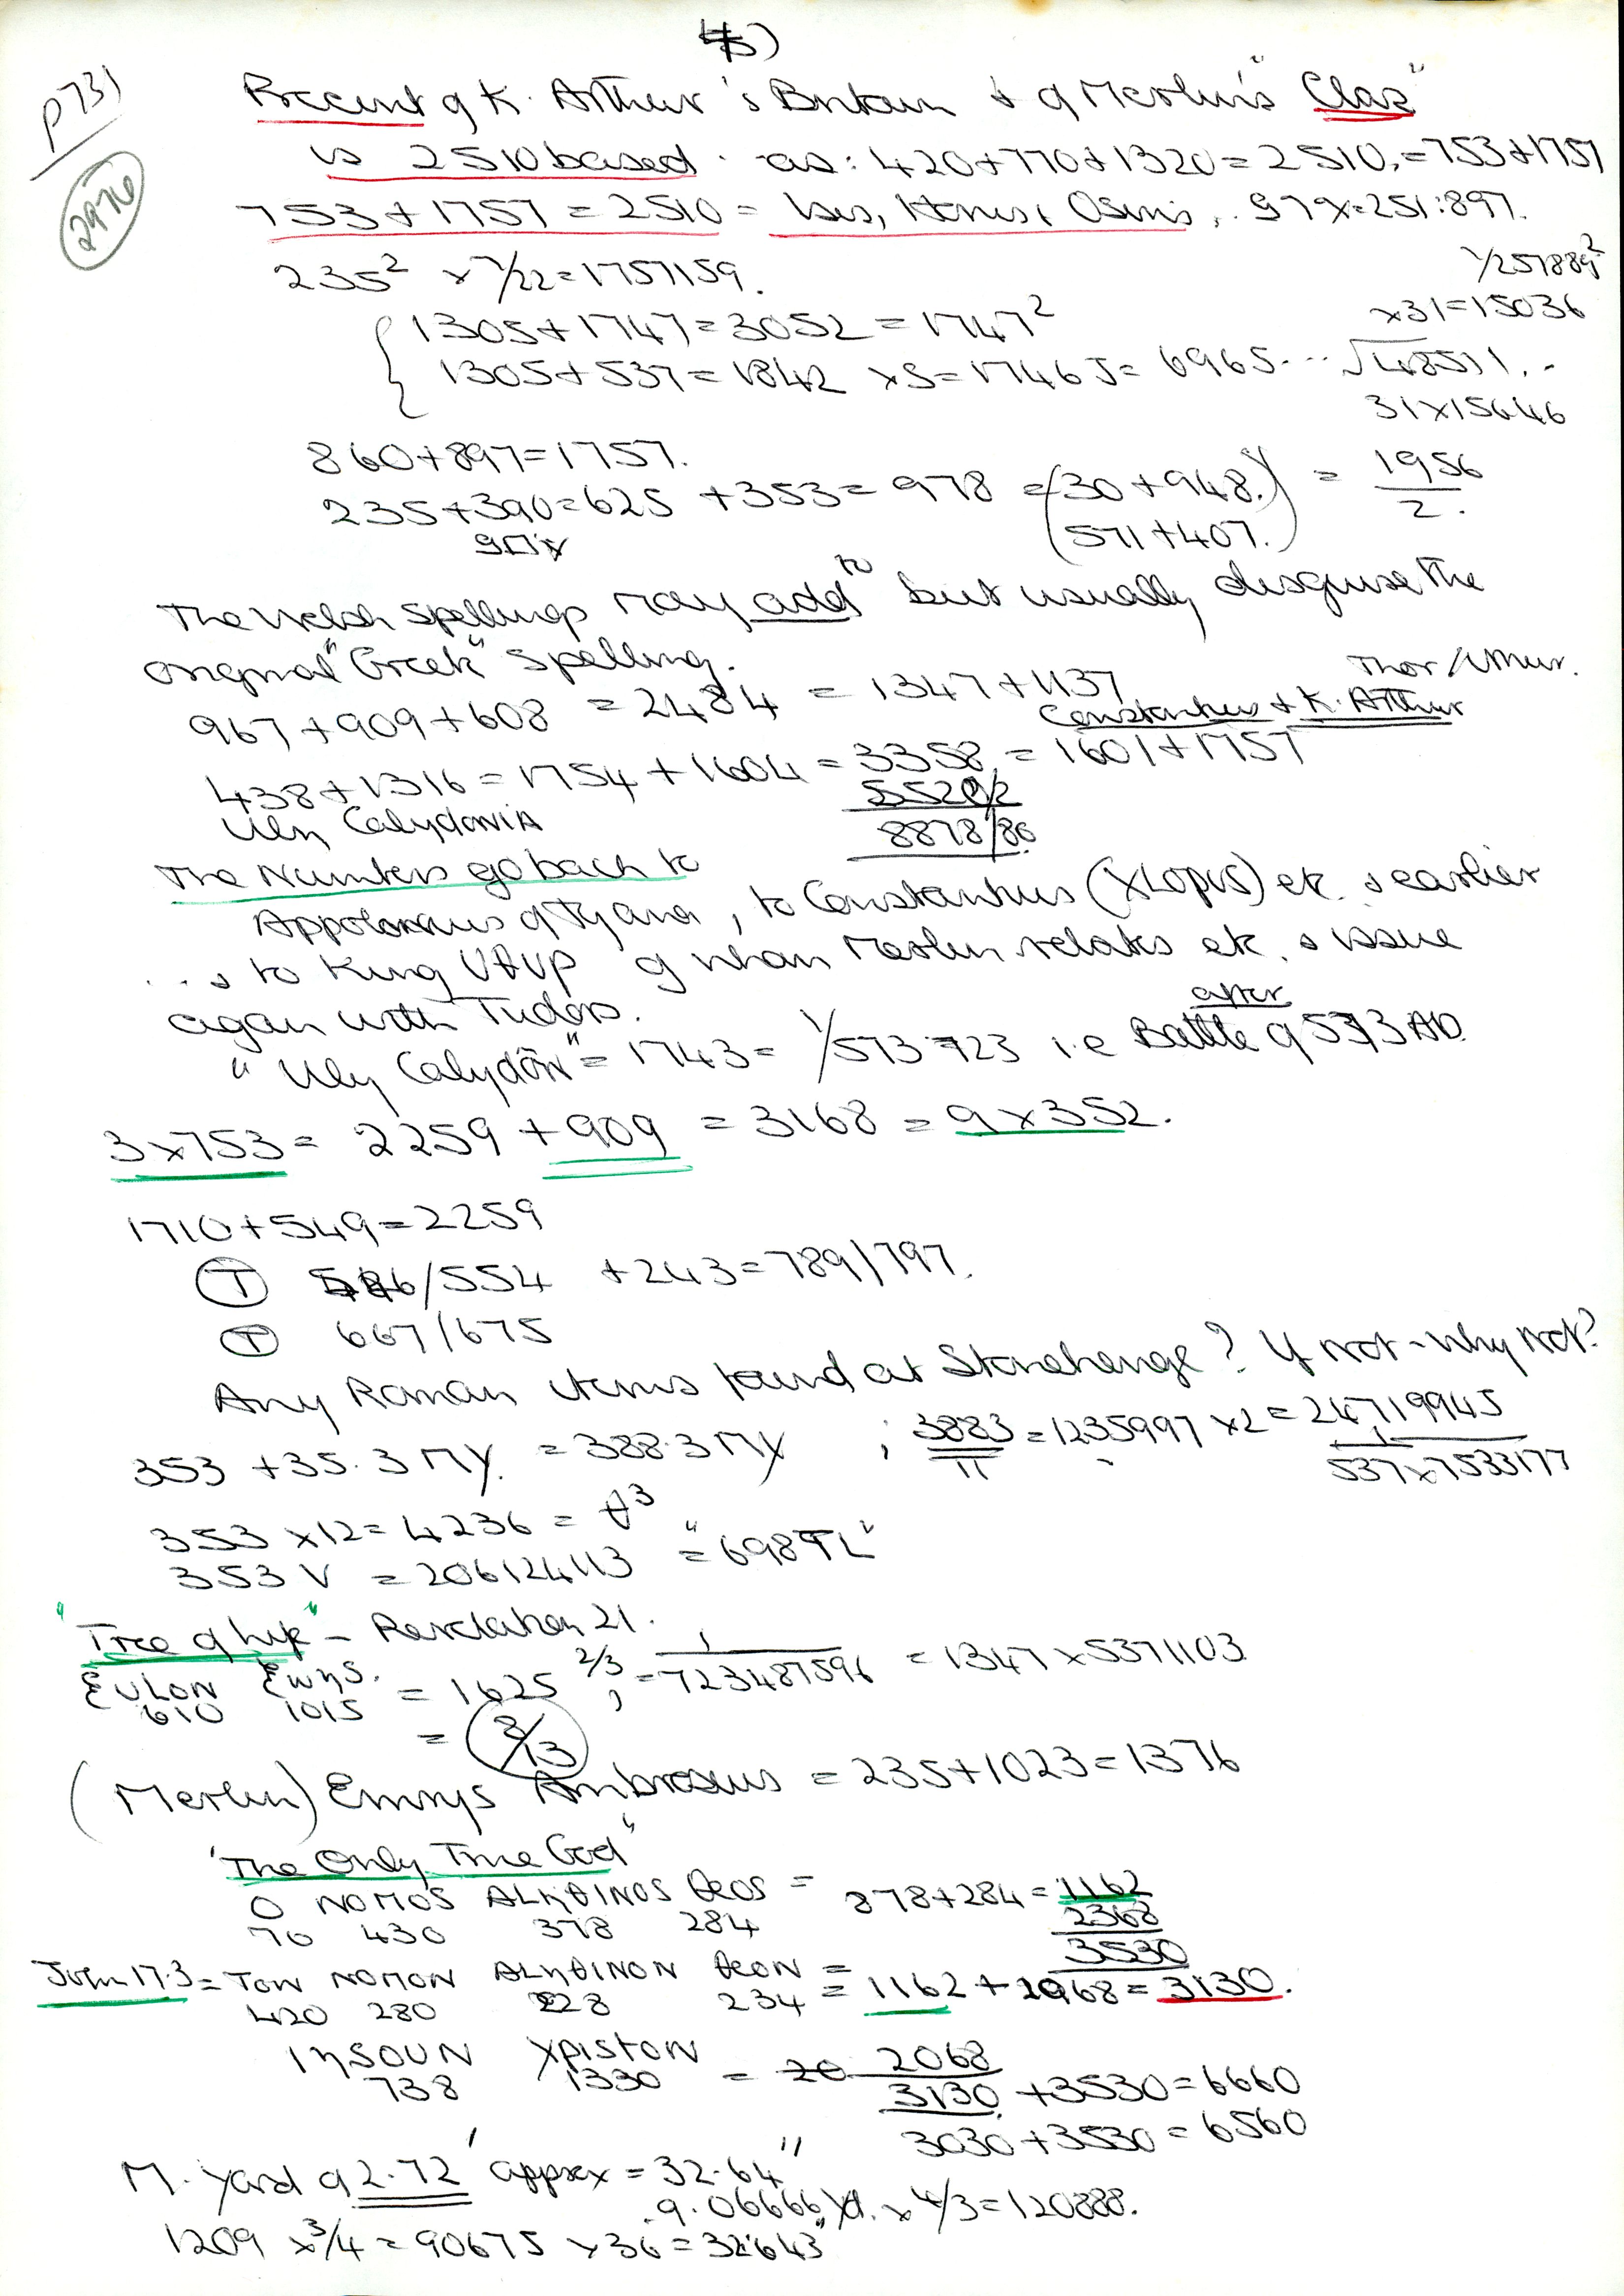 45)
P731
2976
Precent of K. Arthur's Britain & of Merlin's "Clas"
is 2510 based. as: 420+770+1320=2510,=753+1757
753+1757=2510= Isis, Horus, Osiris, . 97x=251:897.
235² x 7/22=1757159.
1/257889²
1305+1747=3052=1747²
x31=15036
1305+537=1842 x5=1746 J= 6965... √48511..
31x15646
860+897=1757.
235+390=625 +353=978 =(30+948.) = 1956/2.
(571+407.)
The Welsh spellings may add to but usually disguise the
original "Greek" spelling.
967+909+608 = 2484 = 1347+1137
Thor/
Constantius & K. Arthur
438+1316=1754+1604=3358.=1601+1757
Uly CalydoniA
5520/2
8878/86
The Numbers go back to
Appolonius of Tyana, to Constantius (XLOPUS) etc. & earlier
... & to King of whom Merlin relates etc. & issue
again with Tudors.
"Uly Calydon"=1743= 1/573.723 i.e after Battle of 573 AD.
3x753= 2259 +909 = 3168 = 9x352.
1710+549=2259
T 546/554 +243=789/797.
T 667/675
Any Roman items found at Stonehenge? If not - why not?
353 +35.3 MY. =388.3 MY ; 3883/11 =1235997 x2=24719945
537x7533177
353 x12=4236= θ³
353 V =206124113 = "698TL"
"Tree of Life" - Revelation 21.
ξULON ξWηS. = 1625 2/3, = 1/723487596 = 1347x5371103
610 1015
= 8/13
(Merlin) Emrys Ambrosius = 235+1023=1376
"The Only True God"
O NOMOS ALηθINOS θEOS = 878+284=1162
70 430 378 284
2368
3530
John 17.3 = TON NOMON ALηθINON θEON = 1162+1968=3130.
420 280 228 234
IηSOUN XPISTON = 2068
738 1330
3130 +3530=6660
3030+3530=6560
M. Yard of 2.72' approx = 32.64"
.9.06666 Yd. x 4/3=120888.
1209 x3/4=90675 x36=32.643"